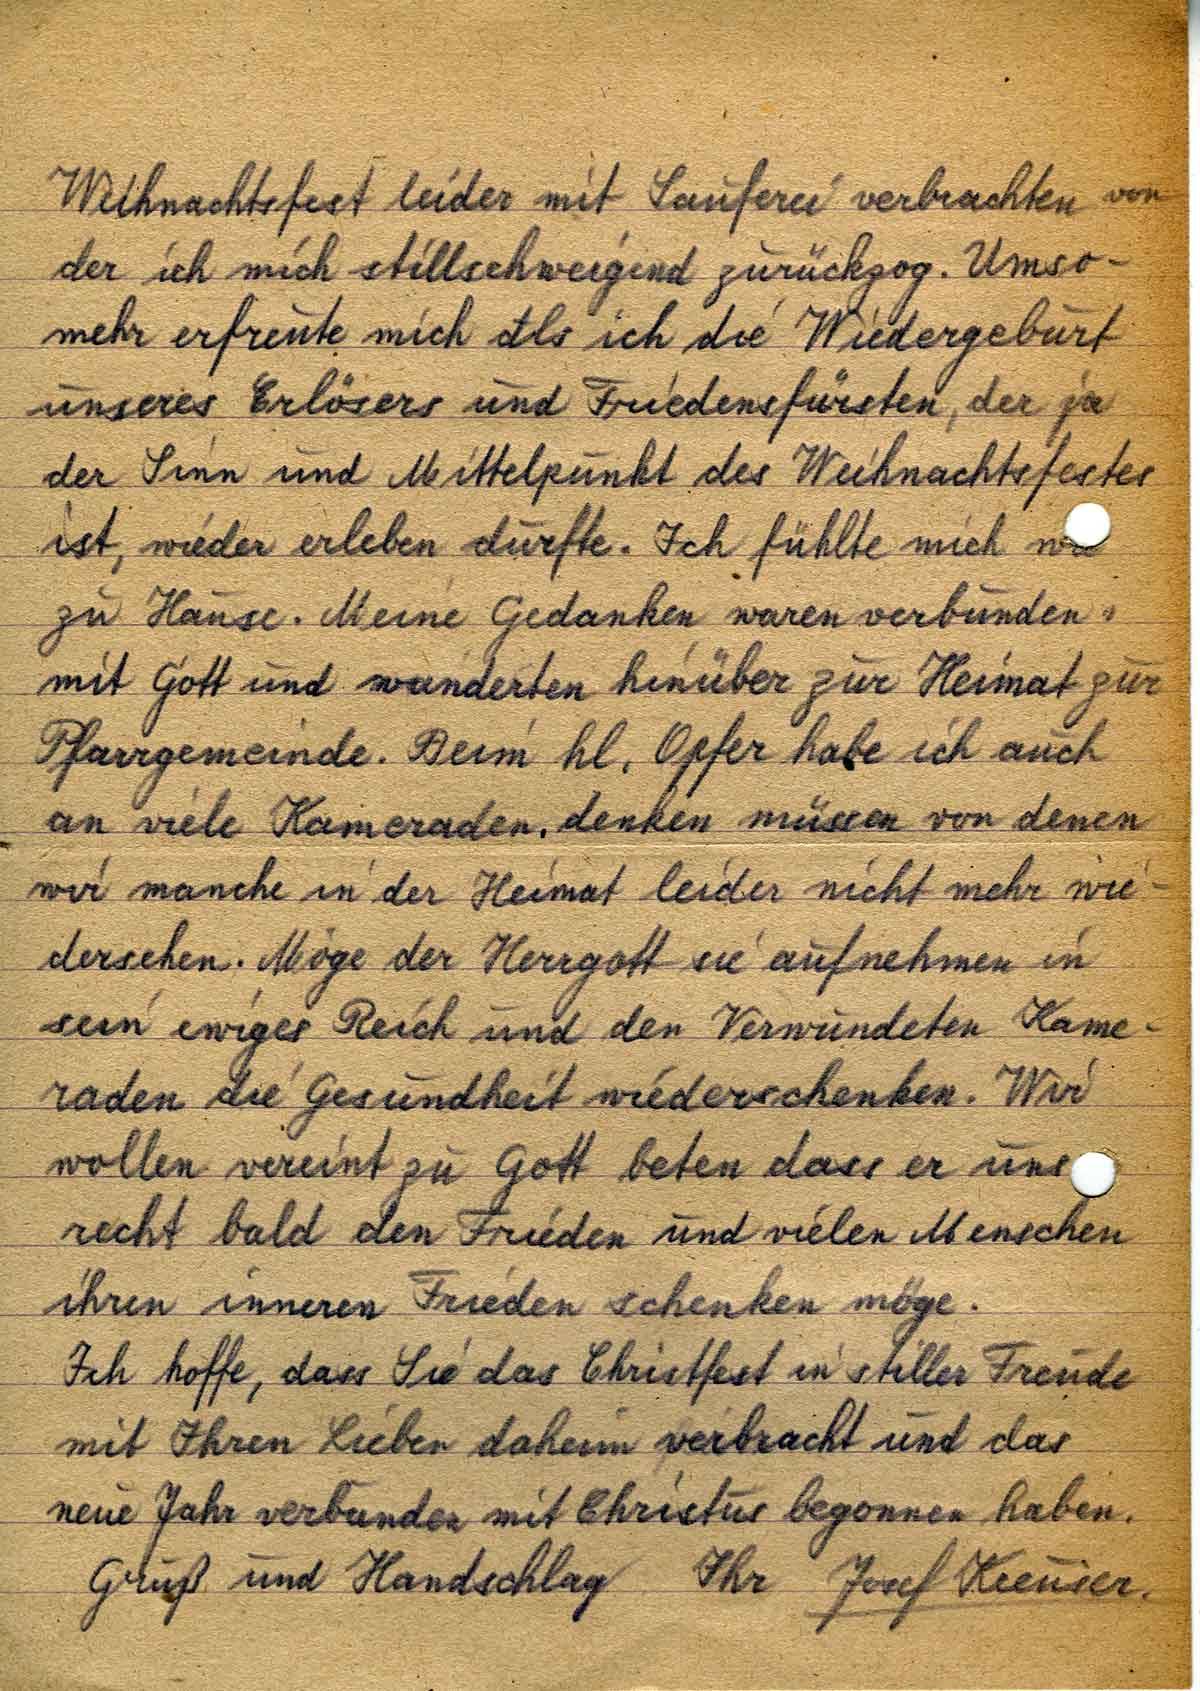 Weihnachtsfest leider mit Sauferei verbrachten von
der ich mich stillschweigend zurückzog. Umso-
mehr erfreute mich als ich die Wiedergeburt
unseres Erlösers und Friedensfürsten, der ja
der Sinn und Mittelpunkt des Weihnachtsfestes
ist, wieder erleben durfte. Ich fühlte mich wie
zu Hause. Meine Gedanken waren verbunden
mit Gott und wanderten hinüber zur Heimat zur
Pfarrgemeinde. Beim hl. Opfer habe ich auch
an viele Kameraden, denken müssen von denen
wir manche in der Heimat leider nicht mehr wie-
dersehen. Möge der Herrgott sie aufnehmen in
sein ewiges Reich und den Verwundeten Kame-
raden die Gesundheit wiederschenken. Wir
wollen vereint zu Gott beten dass er uns
recht bald den Frieden und vielen Menschen
ihren inneren Frieden schenken möge.
Ich hoffe, dass Sie das Christfest in stiller Freude
mit Ihren Lieben daheim verbracht und das
neue Jahr verbunden mit Christus begonnen haben.
Gruß und Handschlag Ihr Josef